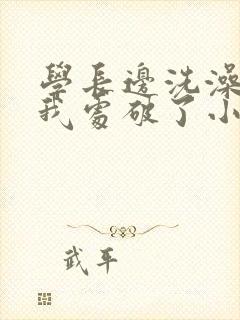 學長邊洗澡
我處破了小
武平